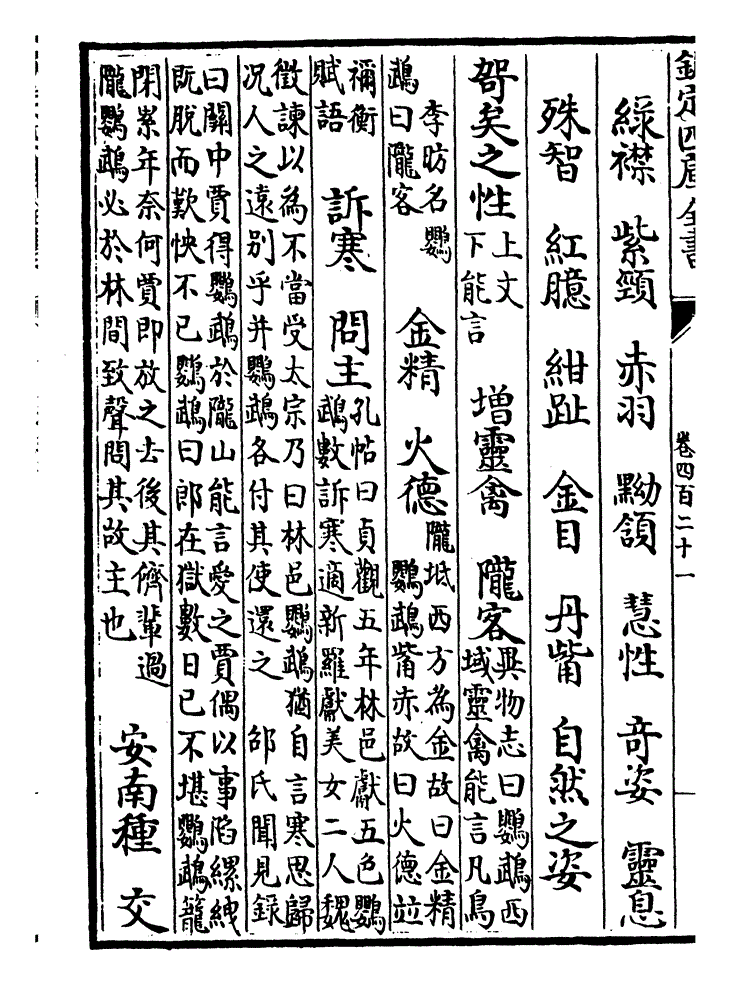 欽定四庫全書 卷四百二十一
綠襟 紫頸 赤羽 黝頷 慧性 奇姿 靈息
殊智 紅臆 紺趾 金目 丹觜 自然之姿
哿矣之性 上文下能言 增靈禽 隴客 異物志曰鸚鵡西域靈禽能言凡鳥
李昉名鸚鵡曰隴客 金精 火德 隴坻西方為金故曰金精鸚鵡觜赤故曰火德竝
禰衡賦語 訴寒 問主 孔帖曰貞觀五年林邑獻五色鸚鵡數訴寒適新羅獻美女二人魏
徵諫以為不當受太宗乃曰林邑鸚鵡猶自言寒思歸況人之遠別乎并鸚鵡各付其使還之 邵氏聞見錄
曰關中賈得鸚鵡於隴山能言愛之賈偶以事陷縲絏既脫而歎怏不已鸚鵡曰郎在獄數日已不堪鸚鵡籠
閉累年奈何賈即放之去後其儕輩過隴鸚鵡必於林間致聲問其故主也 安南種 交